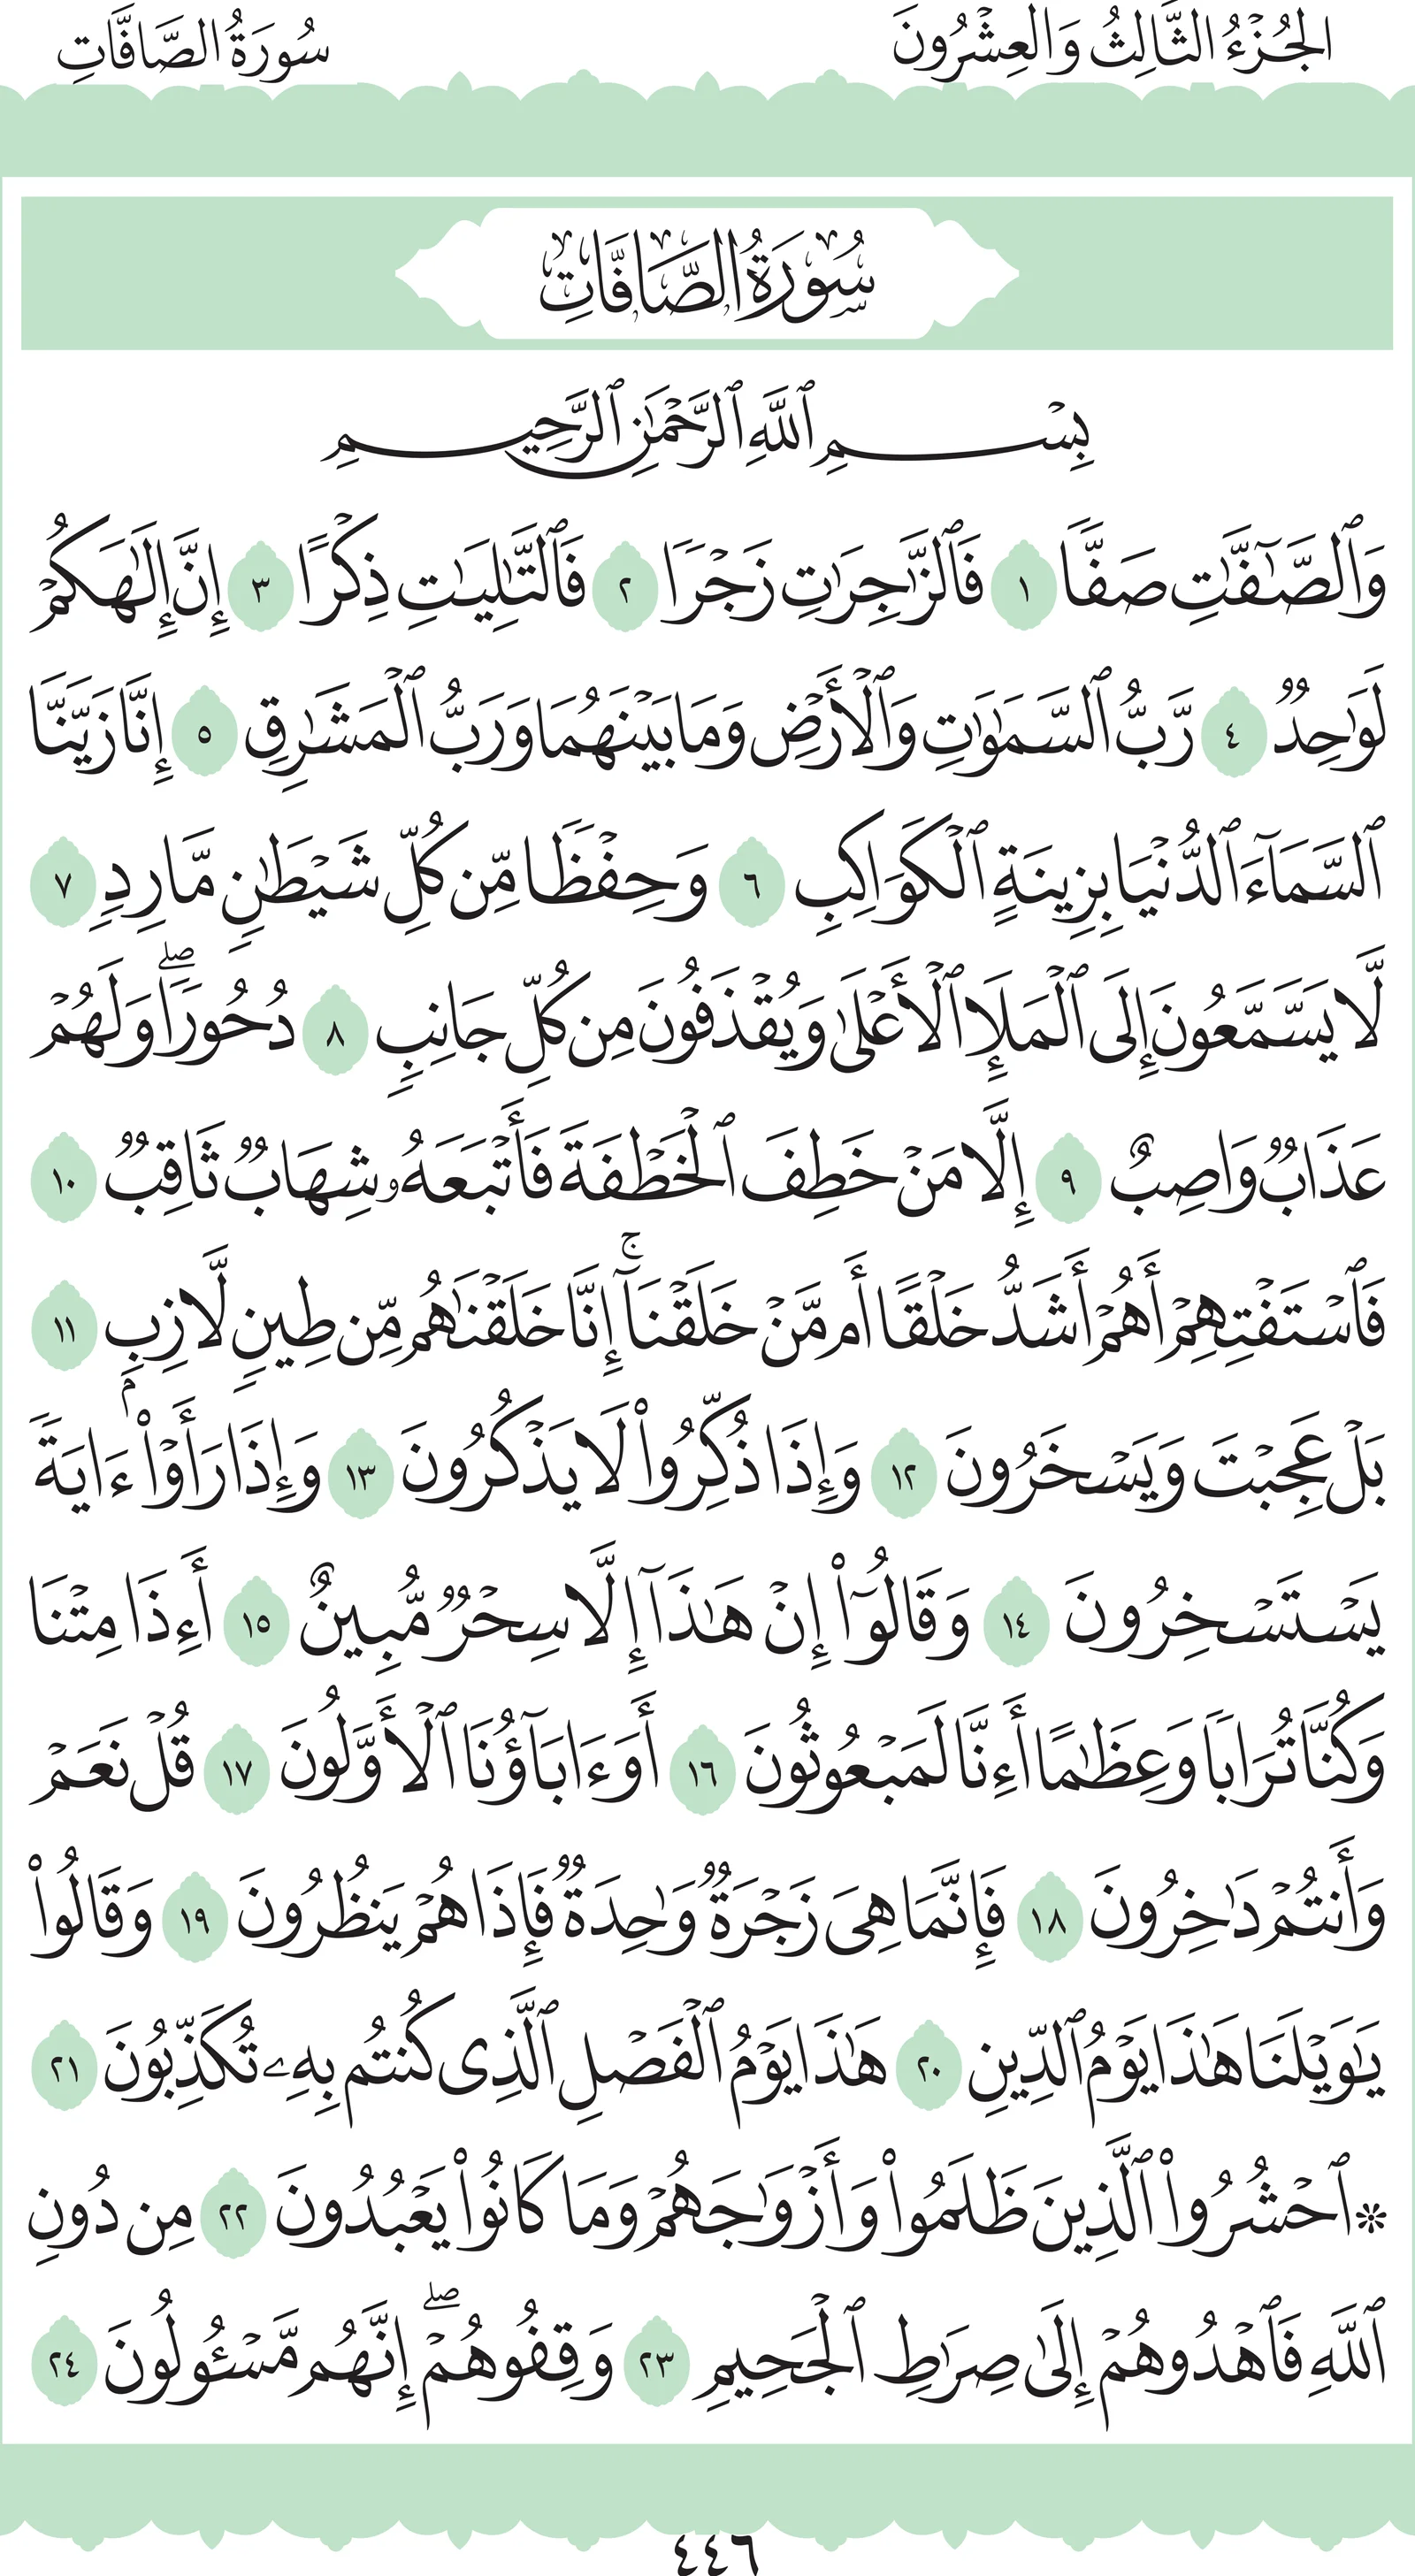 الجُزْءُ الثَّالِثُ وَالعِشْرُونَ
سُورَةُ الصَّافَّاتِ
سُورَةُ الصَّافَّاتِ
بِسْمِ ٱللَّهِ ٱلرَّحْمَٰنِ ٱلرَّحِيمِ
وَٱلصَّٰٓفَّٰتِ صَفّٗا ١ فَٱلزَّٰجِرَٰتِ زَجۡرٗا ٢ فَٱلتَّٰلِيَٰتِ ذِكۡرًا ٣ إِنَّ إِلَٰهَكُمۡ
لَوَٰحِدٞ ٤ رَّبُّ ٱلسَّمَٰوَٰتِ وَٱلۡأَرۡضِ وَمَا بَيۡنَهُمَا وَرَبُّ ٱلۡمَشَٰرِقِ ٥ إِنَّا زَيَّنَّا
ٱلسَّمَآءَ ٱلدُّنۡيَا بِزِينَةٍ ٱلۡكَوَاكِبِ ٦ وَحِفۡظٗا مِّن كُلِّ شَيۡطَٰنٖ مَّارِدٖ ٧
لَّا يَسَّمَّعُونَ إِلَى ٱلۡمَلَإِ ٱلۡأَعۡلَىٰ وَيُقۡذَفُونَ مِن كُلِّ جَانِبٖ ٨ دُحُورٗاۖ وَلَهُمۡ
عَذَابٞ وَاصِبٌ ٩ إِلَّا مَنۡ خَطِفَ ٱلۡخَطۡفَةَ فَأَتۡبَعَهُۥ شِهَابٞ ثَاقِبٞ ١٠
فَٱسۡتَفۡتِهِمۡ أَهُمۡ أَشَدُّ خَلۡقًا أَم مَّنۡ خَلَقۡنَآۚ إِنَّا خَلَقۡنَٰهُم مِّن طِينٖ لَّازِبِۭ ١١
بَلۡ عَجِبۡتَ وَيَسۡخَرُونَ ١٢ وَإِذَا ذُكِّرُواْ لَا يَذۡكُرُونَ ١٣ وَإِذَا رَأَوۡاْ ءَايَةٗ
يَسۡتَسۡخِرُونَ ١٤ وَقَالُوٓاْ إِنۡ هَٰذَآ إِلَّا سِحۡرٞ مُّبِينٌ ١٥ أَءِذَا مِتۡنَا
وَكُنَّا تُرَابٗا وَعِظَٰمًا أَءِنَّا لَمَبۡعُوثُونَ ١٦ أَوَءَابَآؤُنَا ٱلۡأَوَّلُونَ ١٧ قُلۡ نَعَمۡ
وَأَنتُمۡ دَٰخِرُونَ ١٨ فَإِنَّمَا هِيَ زَجۡرَةٞ وَٰحِدَةٞ فَإِذَا هُمۡ يَنظُرُونَ ١٩ وَقَالُواْ
يَٰوَيۡلَنَا هَٰذَا يَوۡمُ ٱلدِّينِ ٢٠ هَٰذَا يَوۡمُ ٱلۡفَصۡلِ ٱلَّذِي كُنتُم بِهِۦ تُكَذِّبُونَ ٢١
۞ ٱحۡشُرُواْ ٱلَّذِينَ ظَلَمُواْ وَأَزۡوَٰجَهُمۡ وَمَا كَانُواْ يَعۡبُدُونَ ٢٢ مِن دُونِ
ٱللَّهِ فَٱهۡدُوهُمۡ إِلَىٰ صِرَٰطِ ٱلۡجَحِيمِ ٢٣ وَقِفُوهُمۡۖ إِنَّهُم مَّسۡـُٔولُونَ ٢٤
٤٤٦